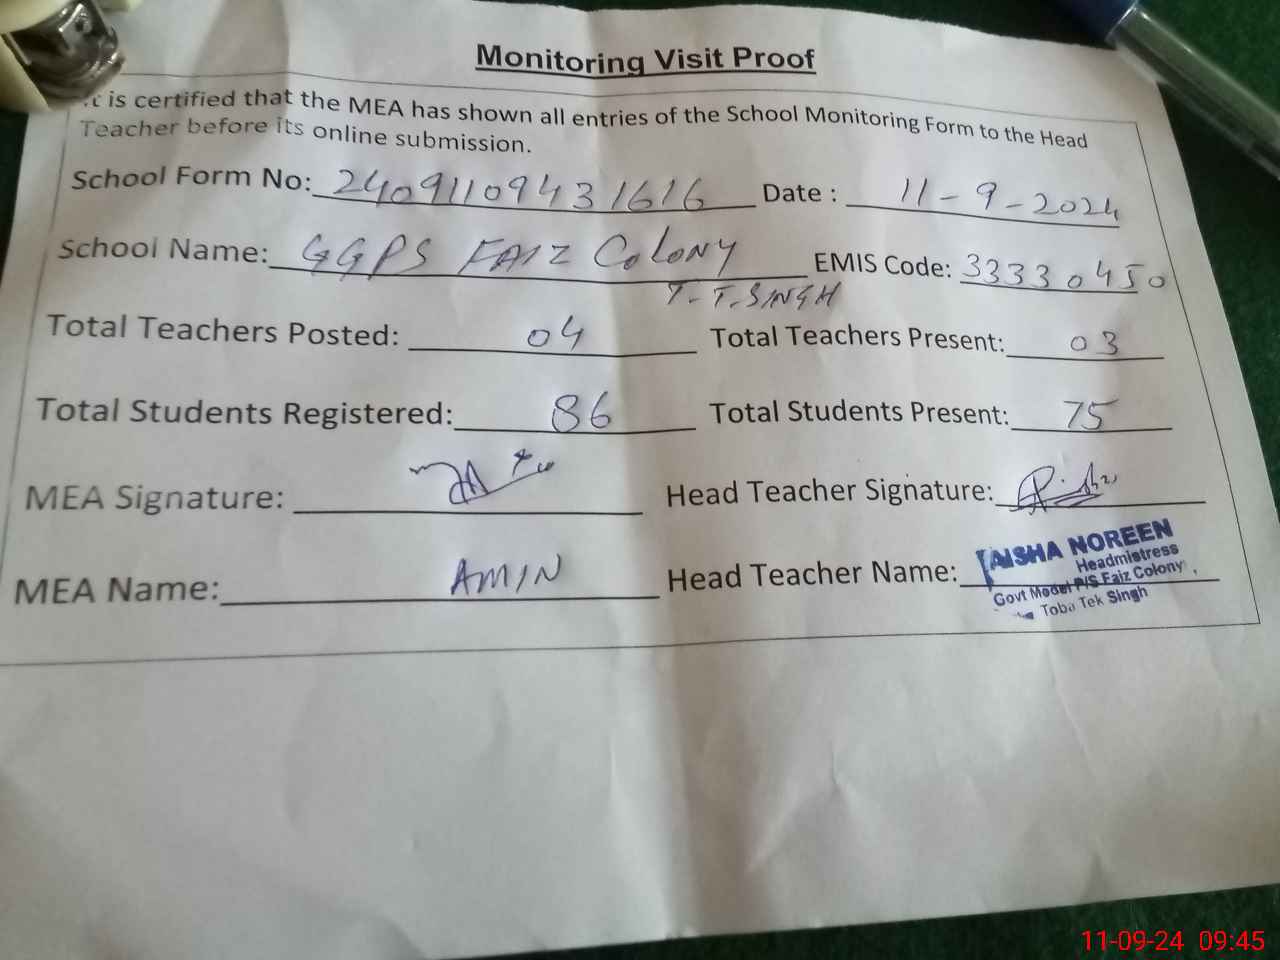 Monitoring Visit Proof
It is certified that the MEA has shown all entries of the School Monitoring Form to the Head
Teacher before its online submission.
School Form No: 24091109431616 Date : 11-9-2024
School Name: GGPS FAIZ COLONY EMIS Code: 33330450
T.T.SINGH
Total Teachers Posted: 04 Total Teachers Present: 03
Total Students Registered: 86 Total Students Present: 75
MEA Signature: Head Teacher Signature:
MEA Name: AMIN Head Teacher Name:
AISHA NOREEN
Headmistress
Govt Model P/S Faiz Colony
Toba Tek Singh
11-09-24 09:45